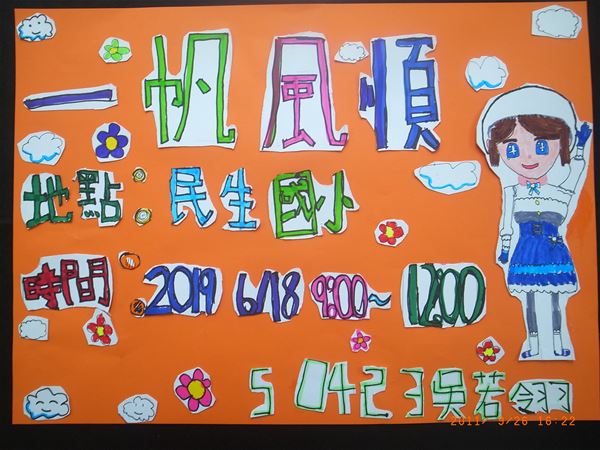 一帆風順
地點：民生國小
時間：2019 6/18 9:00~12:00
50423吳若翎
2011/ 9/26 16:22